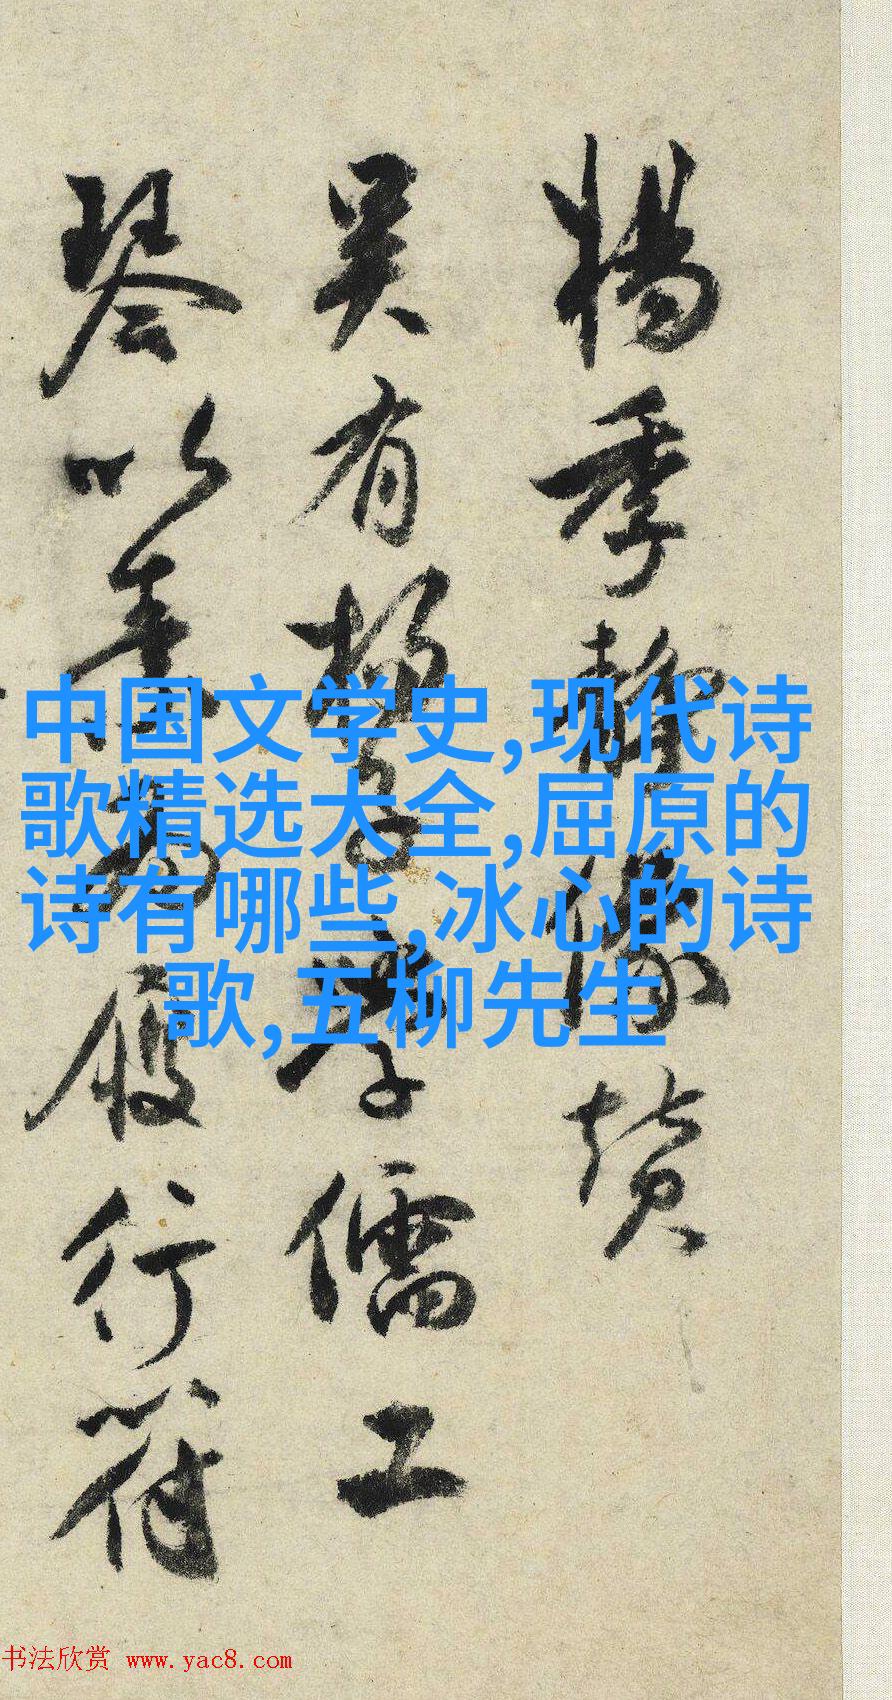 楊季靜像贊
吳有楊子學儒工
琴以為履行符
中国文学史,现代诗
歌精选大全,屈原的
诗有哪些,冰心的诗
歌,五柳先生
书法欣赏 www.yac8.com